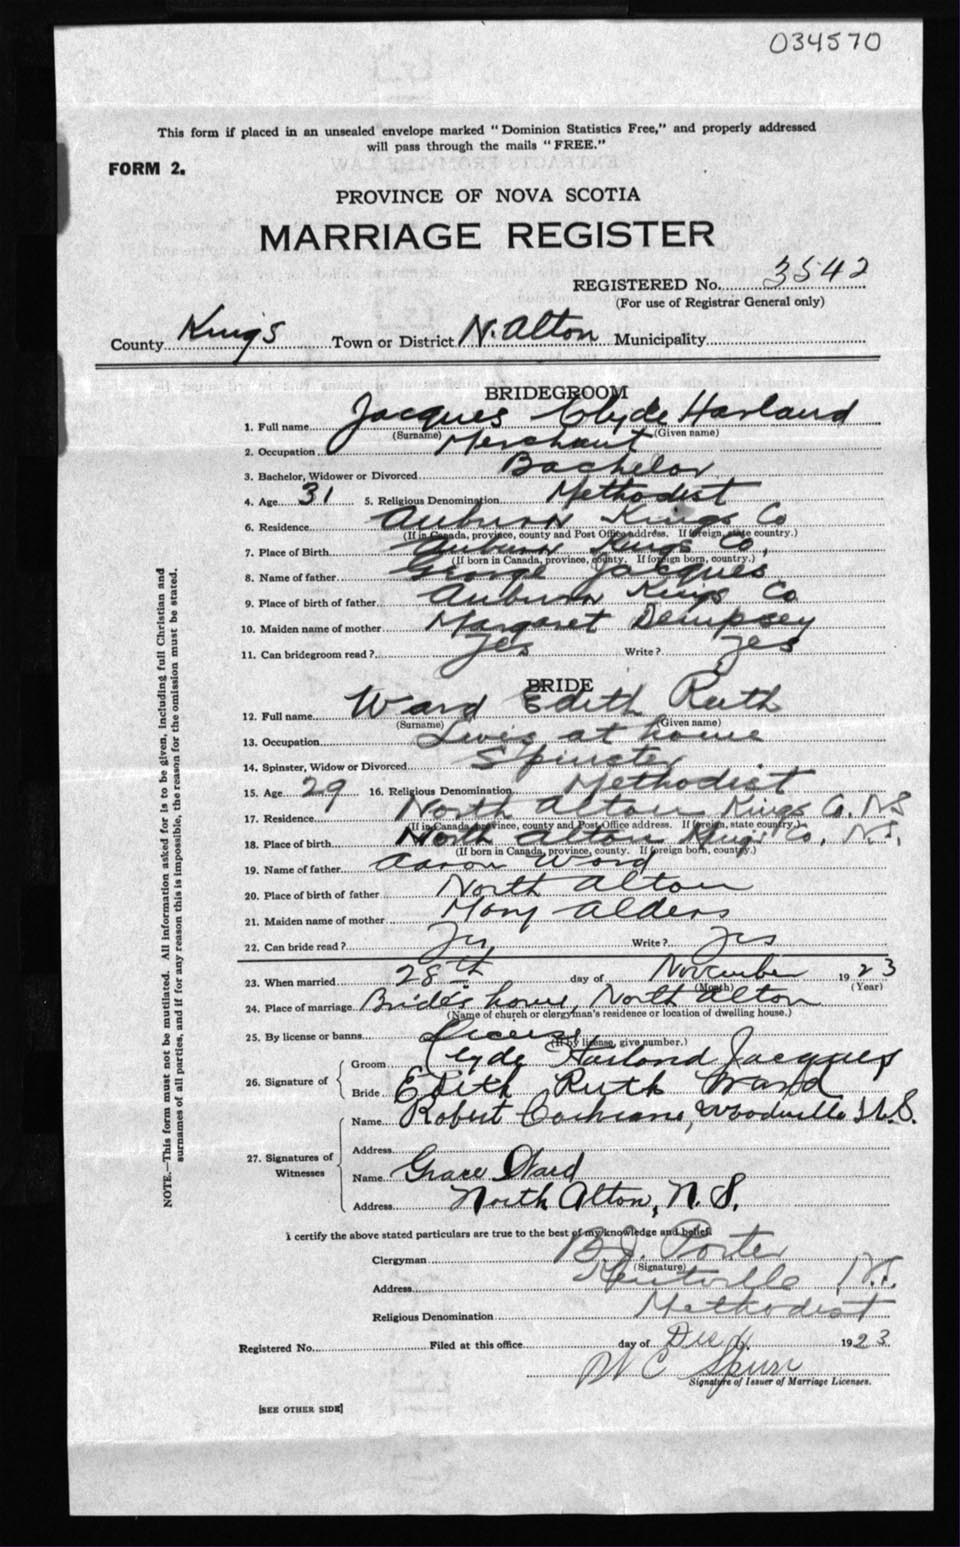 034570
This form if placed in an unsealed envelope marked "Dominion Statistics Free," and properly addressed
will pass through the mails "FREE."
FORM 2.
PROVINCE OF NOVA SCOTIA
MARRIAGE REGISTER
REGISTERED No. 3542
(For use of Registrar General only)
County Kings Town or District N. Alton Municipality
BRIDEGROOM
1. Full name Jacques Clyde Harland
(Surname) (Given name)
2. Occupation Merchant
3. Bachelor, Widower or Divorced Bachelor
4. Age 31 5. Religious Denomination Methodist
6. Residence Auburn Kings Co
(If in Canada, province, county and Post Office address. If foreign, state country.)
7. Place of Birth Auburn Kings Co.
(If born in Canada, province, county. If foreign born, country.)
8. Name of father George Jacques
9. Place of birth of father Auburn Kings Co
10. Maiden name of mother Margaret Dempsey
11. Can bridegroom read? Yes Write? Yes
BRIDE
12. Full name Ward Edith Ruth
(Surname) (Given name)
13. Occupation Lives at home
14. Spinster, Widow or Divorced Spinster
15. Age 29 16. Religious Denomination Methodist
17. Residence North Alton Kings Co. NS
(If in Canada, province, county and Post Office address. If foreign, state country.)
18. Place of birth North Alton Kings Co. N.S.
(If born in Canada, province, county. If foreign born, country.)
19. Name of father Aaron Ward
20. Place of birth of father North Alton
21. Maiden name of mother Mary Alders
22. Can bride read? Yes Write? Yes
23. When married 28th day of November 1923
(Month) (Year)
24. Place of marriage Bride's home, North Alton
(Name of church or clergyman's residence or location of dwelling house.)
25. By license or banns License
(If by license, give number.)
26. Signature of Groom Clyde Harland Jacques
Bride Edith Ruth Ward
27. Signatures of Witnesses Name Robert Cochrane, Woodville N.S.
Address
Name Grace Ward
Address North Alton, N.S.
I certify the above stated particulars are true to the best of my knowledge and belief.
Clergyman B. J. Porter
(Signature)
Address Kentville N.S.
Religious Denomination Methodist
Registered No. Filed at this office day of Dec 1923
W C Spurr
Signature of Issuer of Marriage Licenses.
[SEE OTHER SIDE]
NOTE.—This form must not be mutilated. All information asked for is to be given, including full Christian and
surnames of all parties, and if for any reason this is impossible, the reason for the omission must be stated.